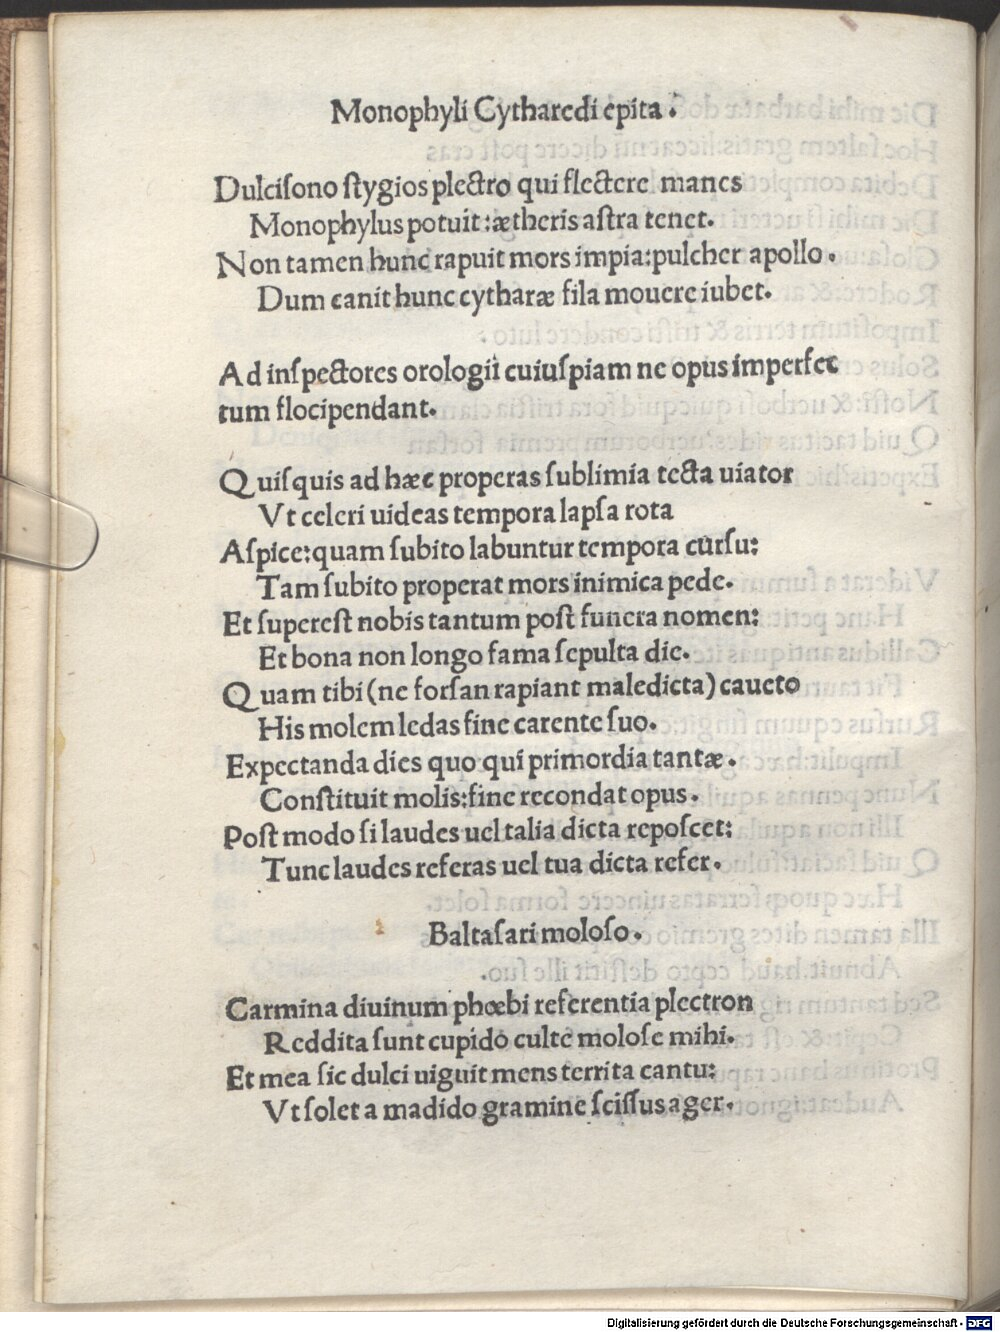 Monophyli Cytharedi epita.
Dulciſono ſtygios plectro qui flectere manes
Monophylus potuit:ætheris aſtra tenet.
Non tamen hunc rapuit mors impia:pulcher apollo.
Dum canit hunc cytharæ fila mouere iubet.
Ad inſpectores orologii cuiuſpiam ne opus imperfec
tum flocipendant.
Quiſquis ad hæc properas ſublimia tecta uiator
Vt celeri uideas tempora lapſa rota
Aſpice:quam ſubito labuntur tempora curſu:
Tam ſubito properat mors inimica pede.
Et ſupereſt nobis tantum poſt funera nomen:
Et bona non longo fama ſepulta die.
Quam tibi (ne forſan rapiant maledicta) caueto
His molem ledas fine carente ſuo.
Expectanda dies quo qui primordia tantæ.
Conſtituit molis:fine recondat opus.
Poſt modo ſi laudes uel talia dicta repoſcet:
Tunc laudes referas uel tua dicta refer.
Baltaſari moloſo.
Carmina diuinum phœbi referentia plectron
Reddita ſunt cupido culte moloſe mihi.
Et mea ſic dulci uiguit mens territa cantu:
Vt ſolet a madido gramine ſciſſus ager.
Digitalisierung gefördert durch die Deutsche Forschungsgemeinschaft - DFG